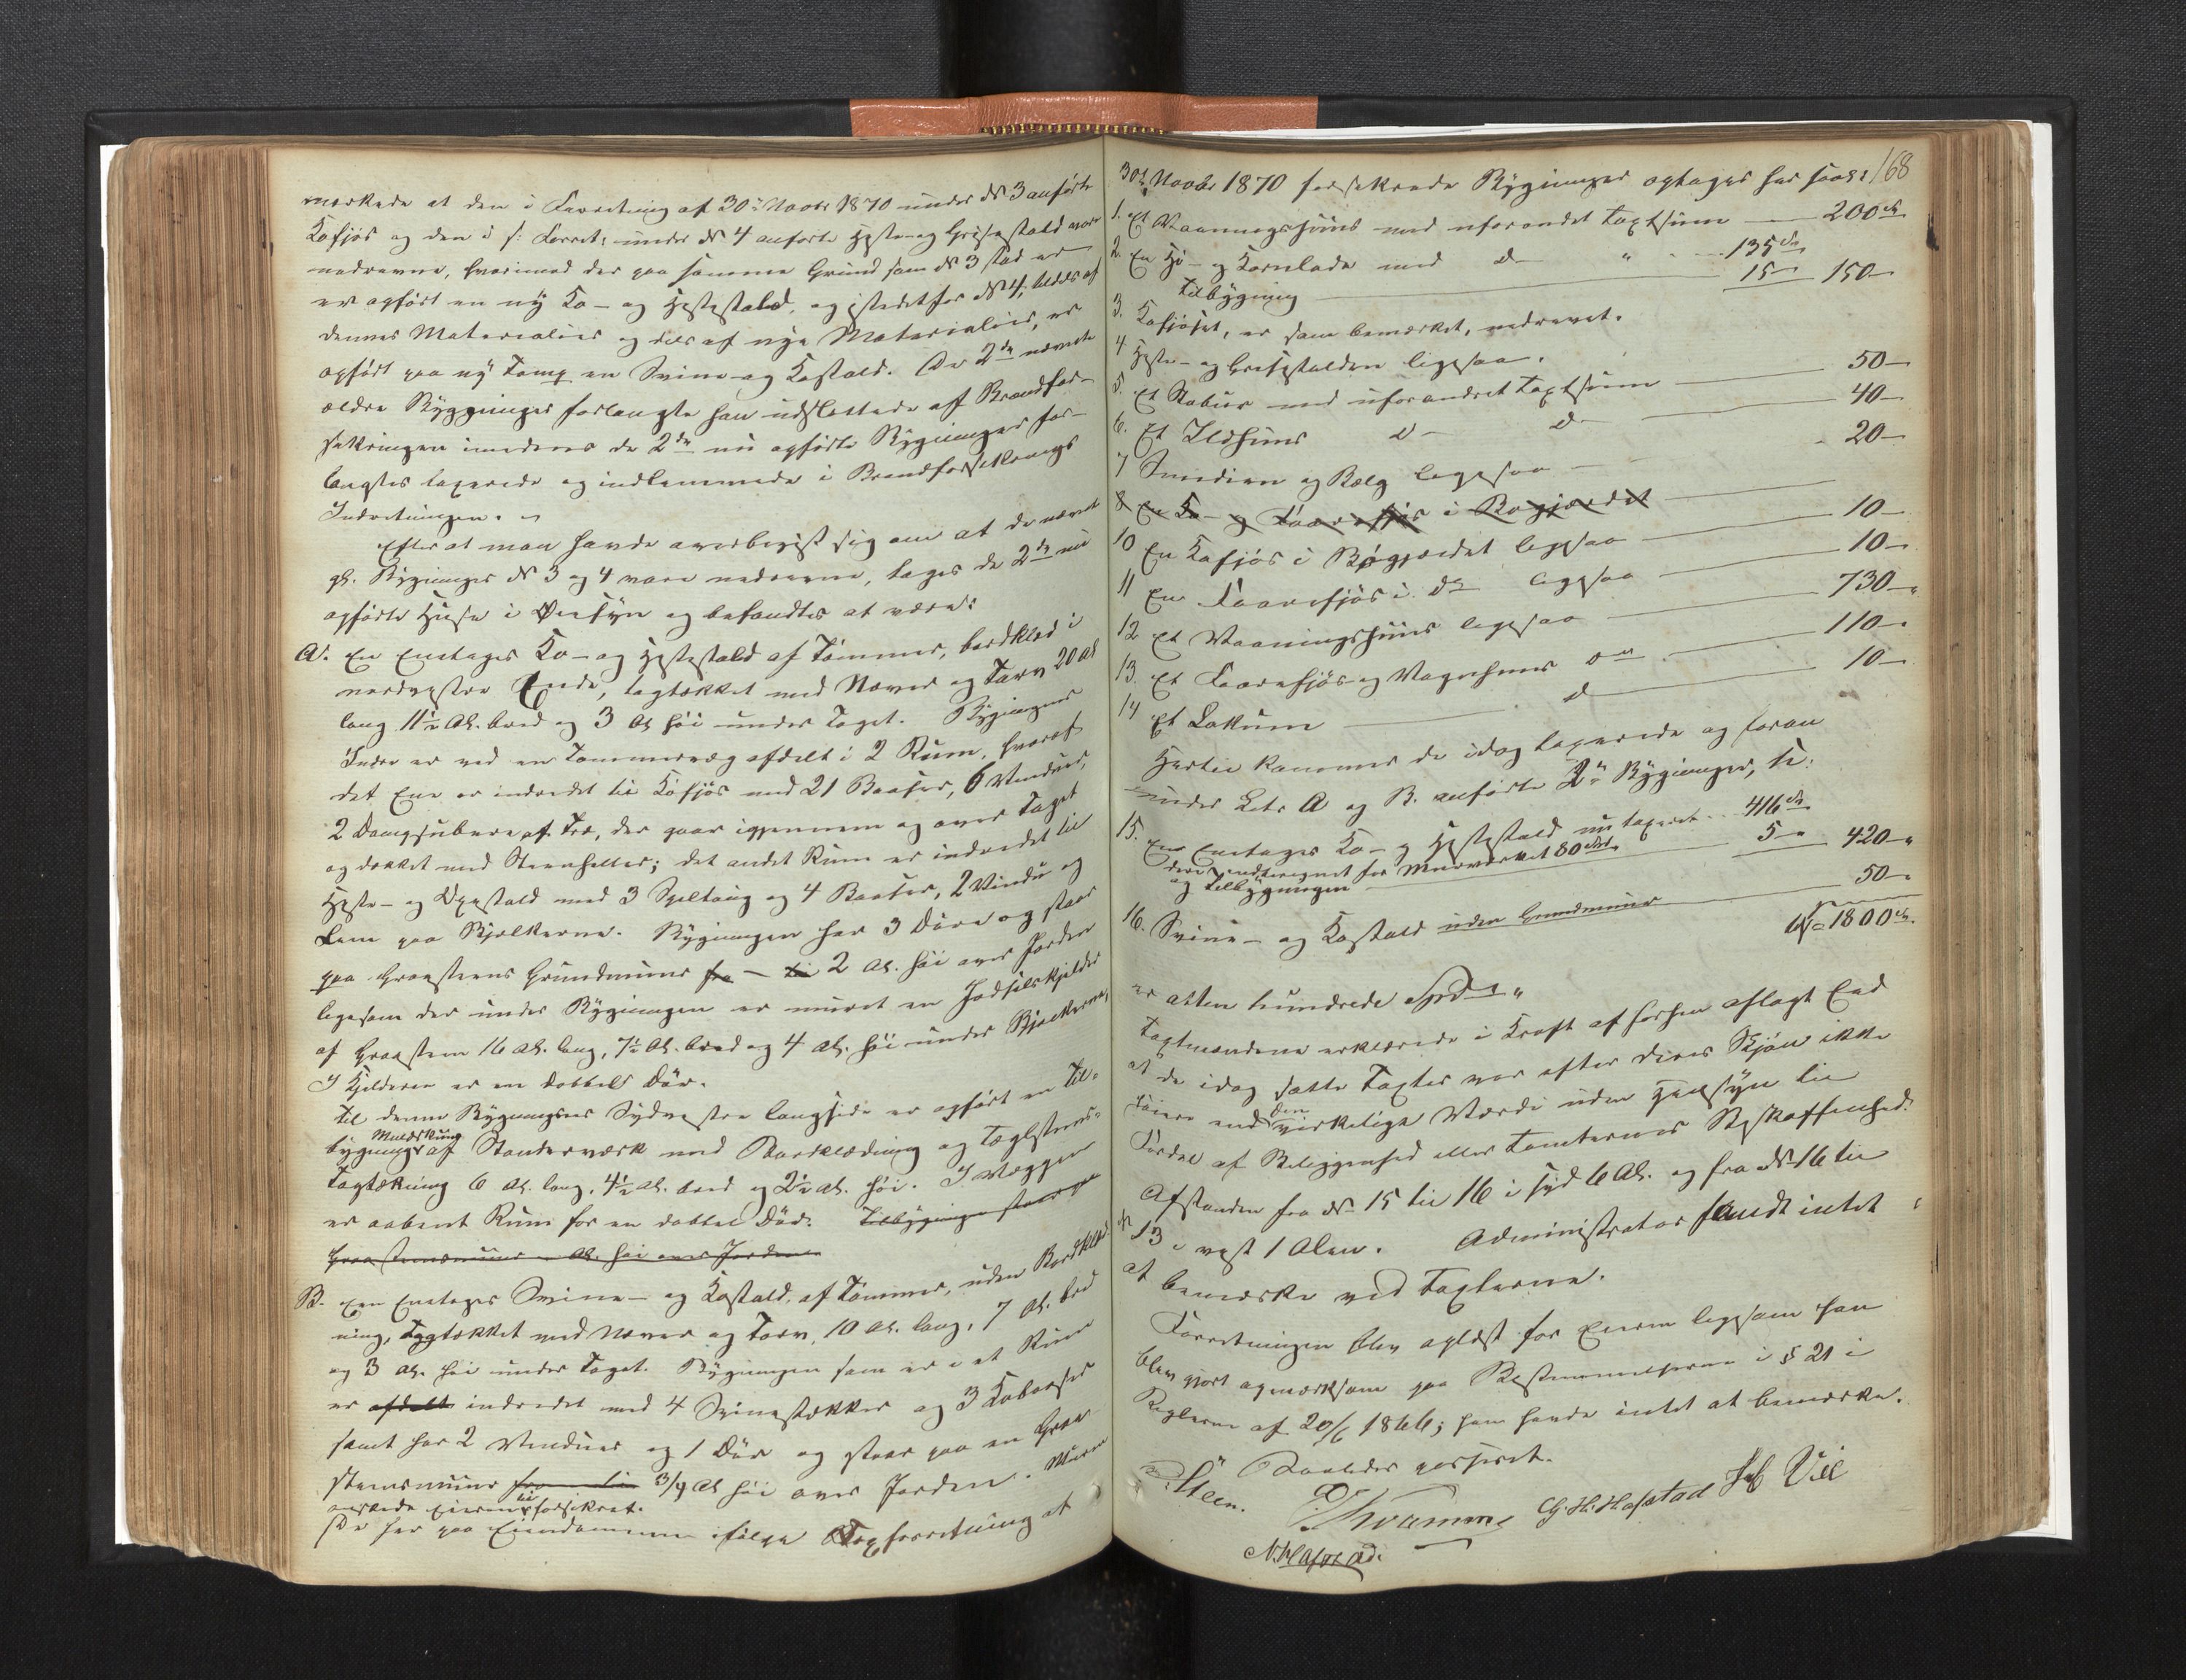 mærkede at den i Forretning af 30te Novbr 1870 under No 3 anførte
Kofjøs og den i s: Forret: under No 4 anførte Heste og Grisestald vare
nedrevne, hvorimod der paa samme Grund som No 3 stod er
er opført en ny Ko- og Hestestald, og istedetfor No 4, tildels af
dennes Materialier og dels af nye Materialier, er
opført paa ny Tomt en Svine og Kostald. De 2de nævnte
ældre Bygninger forlangte han udslettede af Brandfor-
sikringen imedens de 2de nu opførte Bygninger for-
langtes taxerede og indlemmede i Brandforsikrings
Indretningen.
Efter at man havde overbevist sig om at de nævnte
gl. Bygninger No 3 og 4 vare nedrevne, toges de 2de nu
opførte Huse i Øiesyn og befandtes at være:
A. En Enetages Ko- og Hestestald af Tømmer, bordklæd i
nordvestre Ende, tagtækket med Næver og Tørv 20 Al
lang 11½ Al. bred og 3 Al høi under Taget. Bygningens
Indre er ved en Tømmervæg afdelt i 2 Rum, hvoraf
det Ene er indredet til Kofjøs med 21 Baaser, 6 Vinduer,
2 Dampgubere af Træ, der gaar igjennem og over Taget
og dækket med Steenheller; det andet Rum er indredet til
Heste- og Oxestald med 3 Spiltaug og 4 Baaser, 2 Vindu og
Lem paa Bjelkerne. Bygningen har 3 Døre og staar
paa Graasteens Grundmuur fra - til 2 Al. høi over Jorden
ligesom der under Bygningen er muret en Jødselskjelder
af Graasteen 16 Al. lang, 7½ Al. bred og 4 Al. høi under Bjælkerne,
I Kjelderen er en dobbelt Dør.
Til denne Bygnings Sydvestre langside er opført en Til-
bygning af Standerværk med Bordklædning og Tæglsteens-
Tagtækning 6 Al. lang, 4½ Al. bred og 2½ Al. høi. I Væggen
er aabent Rum for en dobbel Dør. Tilbygningen staar paa
Graasteensmuur - Al. høi over Jorden
B. Een Enetages Svine- og Kostald, af Tømmer, uden Bordklæd-
ning, Tagtækket med Næver og Tørv, 10 Al. lang, 7 Al. bred
og 3 Al. høi under Taget. Bygningen som er i et Rum
er afdelt indredet med 4 Svinestækker og 3 Kobaaser
samt har 2 Vinduer og 1 Dør og staar paa en Graa
steensmuur fra - til 3/4 Al høi over Jorden. Muren
ønskede Eieren ei forsikret.
De her paa Eiendommen ifølge Taxforretning af
168
30te Novbr 1870 forsikrede Bygninger optages her saal:
1. Et Vaaningshuus med uforandret Taxtsum 200 Sp
2. En Hø- og Kornlade med do " 135 Sp
Tilbygning 15 - 150 -
3. Kofjøset, er som bemærket, nedrevet.
4 Heste- og Grisestalden ligesaa.
5. Et Stabur med uforandret Taxtsum 50 -
6. Et Ildhuus do do 40 -
7 Smedien og Bælg ligesaa 20 -
8 En Ko- og Faarefjøs i Bøgjærdet
10 En Kofjøs i Bøgjærdet ligesaa 10 -
11 En Faarefjøs i do ligesaa 10 -
12 Et Vaaningshuus ligesaa 730 -
13. Et Faarefjøs og Vognhuus do 110 -
14 Et Lokum do 10 -
Hertil kommer de idag taxerede og foran
under Litr A og B. anførte 2de Bygninger, til:
15. En Enetages Ko- og Hestestald nu taxeret 416 Sp
deri indberegnet for Murværket 80 Spd
og Tilbygningen 5 - 420 -
16. Svine- og Kostald uden Grundmuur 50 -
1800 Sp.
er atten hundrede Spd
Taxtmændene erklærede i Kraft af forhen aflagt Eed
at de idag satte Taxter var efter deres Skjøn ikke
høiere end den virkelige Værdi uden Hensyn til
Fordel af Beliggenhed eller Tomternes Beskaffenhed.
Afstanden fra No 15 til 16 i syd 6 Al. og fra No 16 til
No 13 i vest 1 Alen. Administrator fandt intet
at bemærke ved Taxterne.
Forretningen blev oplæst for Eieren ligesom han
blev gjort opmærksom paa Bestemmelserne i § 21 i
Reglerne af 20/6 1846; han havde intet at bemærke.
Saaledes passeret.
Steen. Kvamme G. H. Hafstad Vie
N. Hafstad.